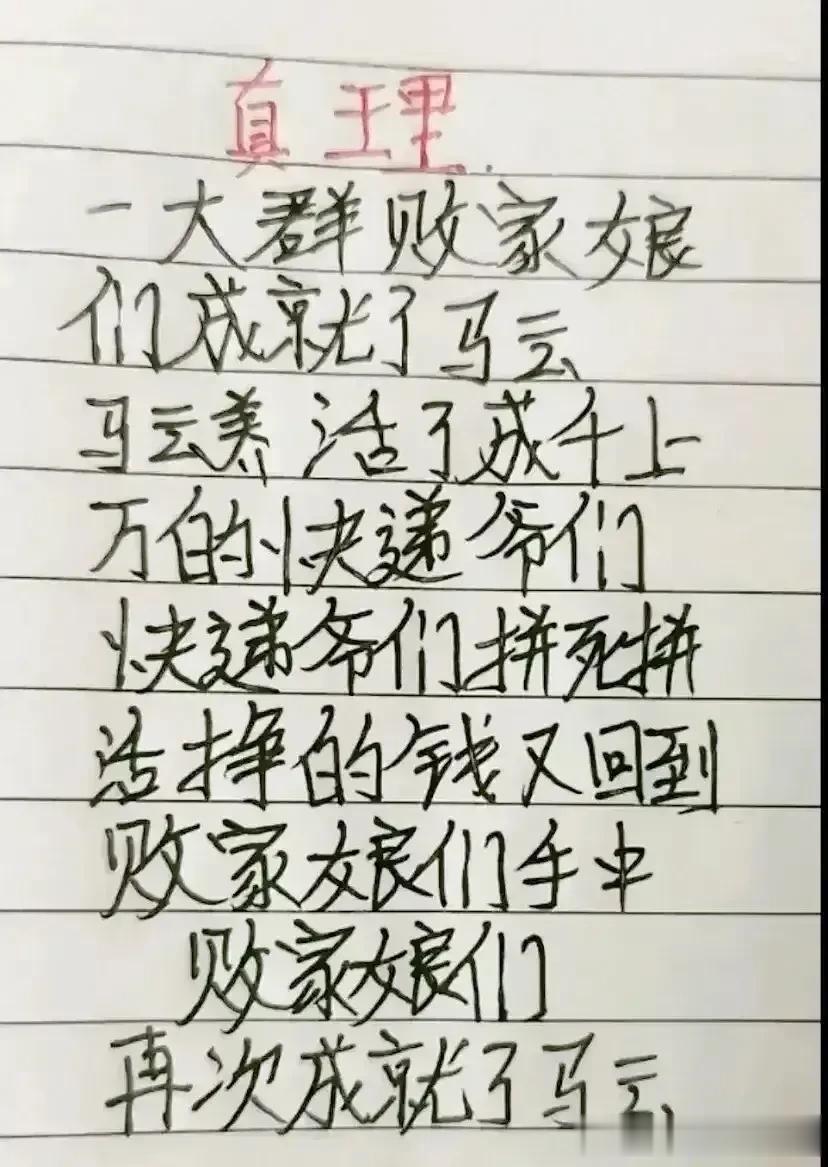 真理
一大群败家娘
们成就了马云
马云养活了成千上
万的快递爷们
快递爷们拼死拼
活挣的钱又回到
败家娘们手中
败家娘们
再次成就了马云